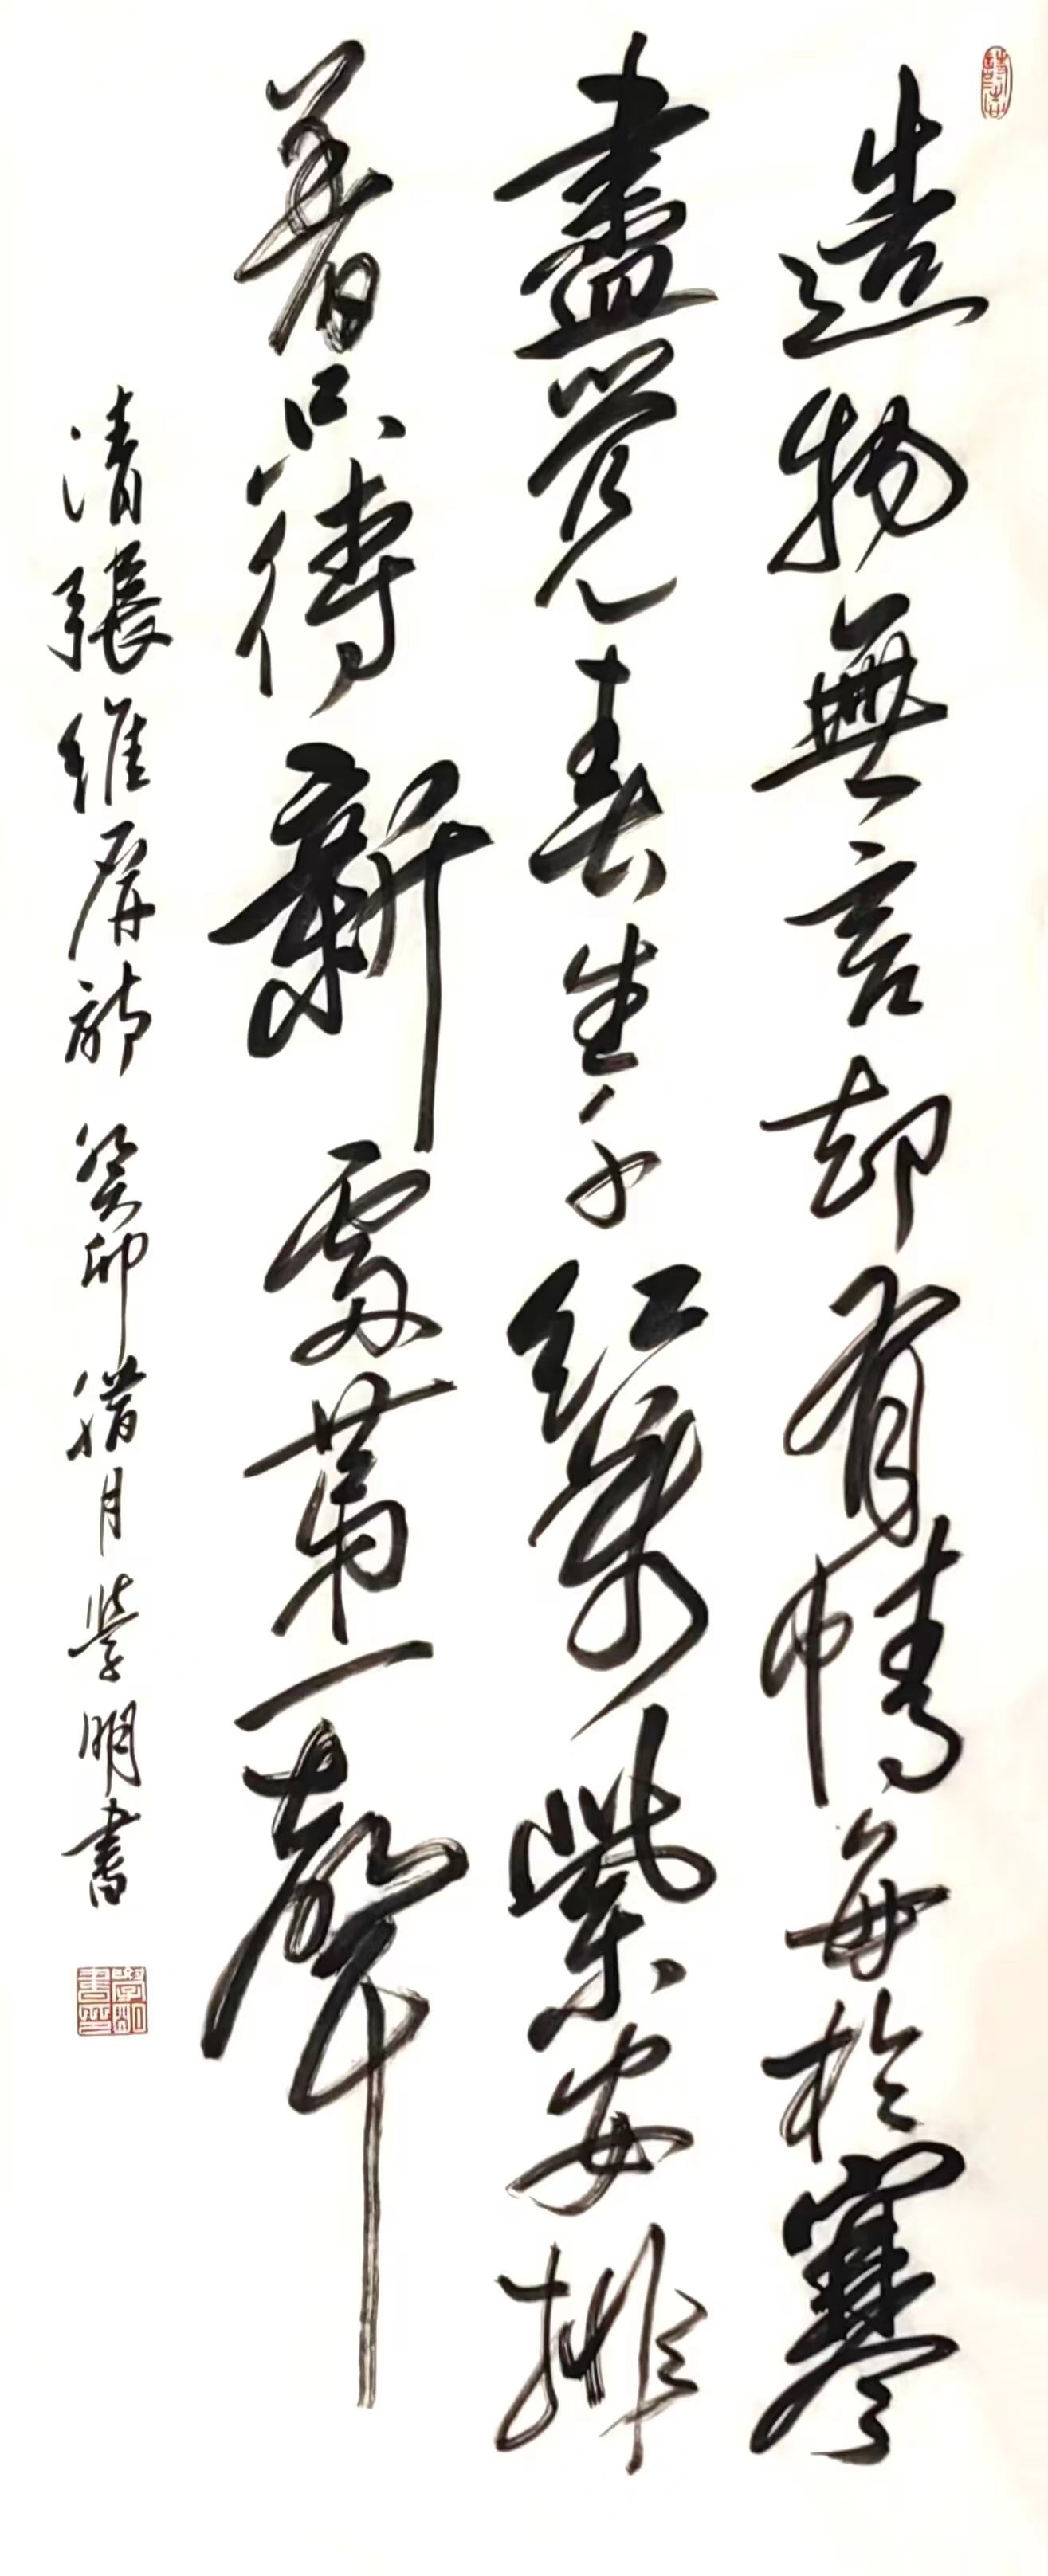 造物無言却有情每於寒
盡覺春生千紅萬紫安排
着只待新雷第一聲
清張維屏詩 癸卯腊月學明書
學明書印